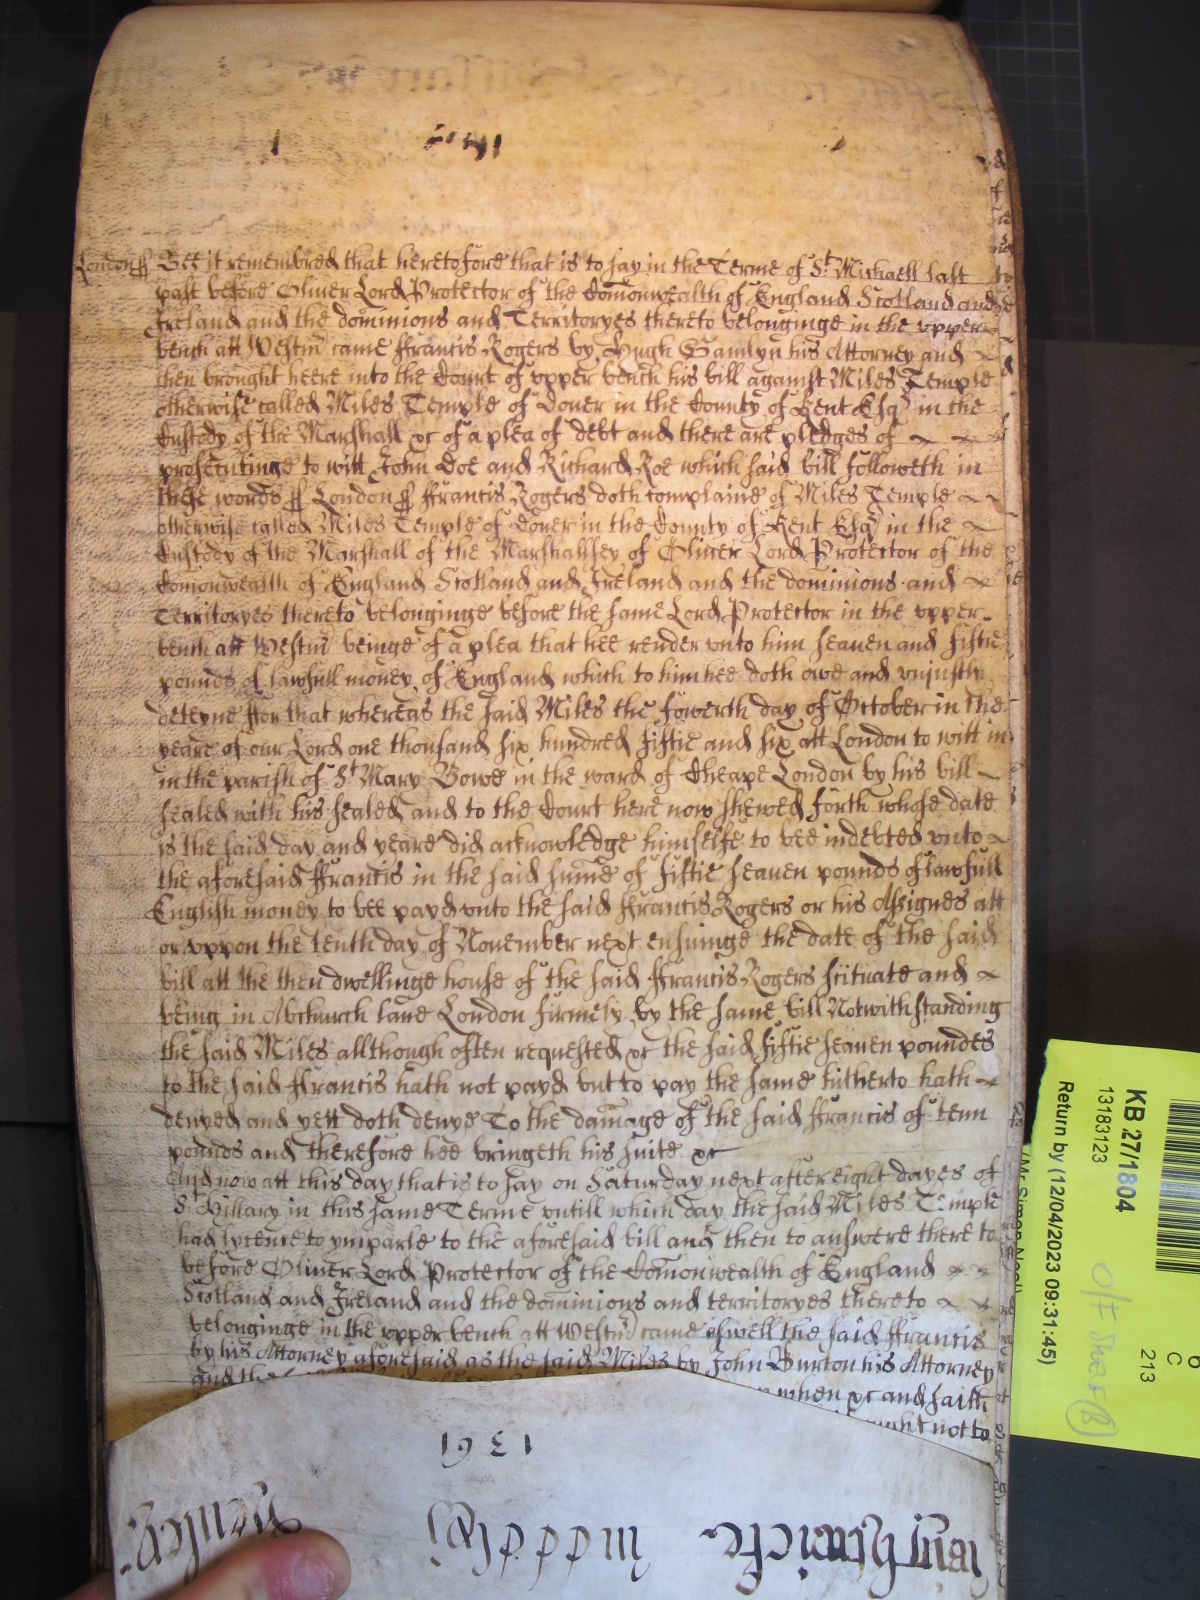 London ss Bee it remembred that heretofore that is to say in the Terme of St Michaell last
past before Oliver Lord Protector of the Comonwealth of England Scotland and
Ireland and the dominions and Territoryes thereto belonginge in the vpper
bench att Westm came ffrancis Rogers by Hugh Hamlyn his Attorney and
then brought heere into the Court of vpper bench his bill against Miles Temple
otherwise called Miles Temple of Dover in the County of Kent Esq in the
Custody of the Marshall &c of a plea of debt and there are pledges of
prosecutinge to witt John Doe and Richard Roe which said bill followeth in
these words ss London ss ffrancis Rogers doth complaine of Miles Temple
otherwise called Miles Temple of Dover in the County of Kent Esq in the
Custody of the Marshall of the Marshallsey of Oliver Lord Protector of the
Comonwealth of England Scotland and Ireland and the dominions and
Territoryes thereto belonginge before the same Lord Protector in the vpper
bench att Westm beinge of a plea that hee render vnto him seauen and fiftie
pounds of lawfull money of England which to him hee doth owe and vniustly
deteyne ffor that whereas the said Miles the fowerth day of October in the
yeare of our Lord one thousand six hundred fiftie and six att London to witt in
in the parish of St Mary Bowe in the ward of Cheape London by his bill
sealed with his seale and to the Court here now shewed forth whose date
is the said day and yeare did acknowledge himselfe to bee indebted vnto
the aforesaid ffrancis in the said sume of fiftie seauen pounds of lawfull
English money to bee payd vnto the said ffrancis Rogers or his Assignes att
or vppon the tenth day of November next ensuinge the date of the said
bill att the then dwellinge house of the said ffrancis Rogers scituate and
being in Abchurch lane London firmely by the same bill Notwithstanding
the said Miles allthough often requested &c the said fiftie seauen poundes
to the said ffrancis hath not payd but to pay the same hitherto hath
denyed and yett doth denye To the damage of the said ffrancis of tenn
pounds and therefore hee bringeth his suite &c
And now att this day that is to say on Saturday next after eight dayes of
St Hillary in this same Terme vntill which day the said Miles Temple
had lycence to ymparle to the aforesaid bill and then to answere there to
before Oliver Lord Protector of the Comonwealth of England
Scotland and Ireland and the dominions and territoryes thereto
belonginge in the vpper bench att Westm came aswell the said ffrancis
by his Attorney aforesaid as the said Miles by John Burton his Attorney
and the
when &c and saith
not to
1361
KB 27/1804
13183123
Return by (12/04/2023 09:31:45)
C
213